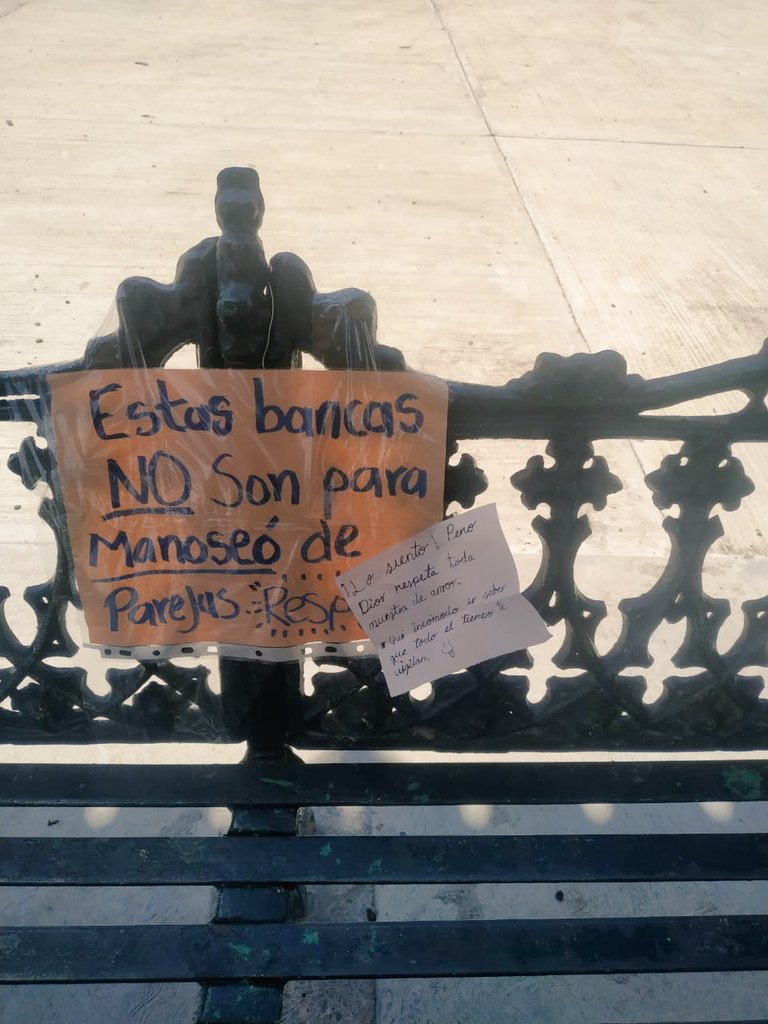 Estas bancas
NO Son para
Manoseó de
Parejas "Resp
¡Lo siento! Pero
Dios respeta toda
muestra de amor.
*Qué incomodo es saber
que todo el tiempo te
vigilan.